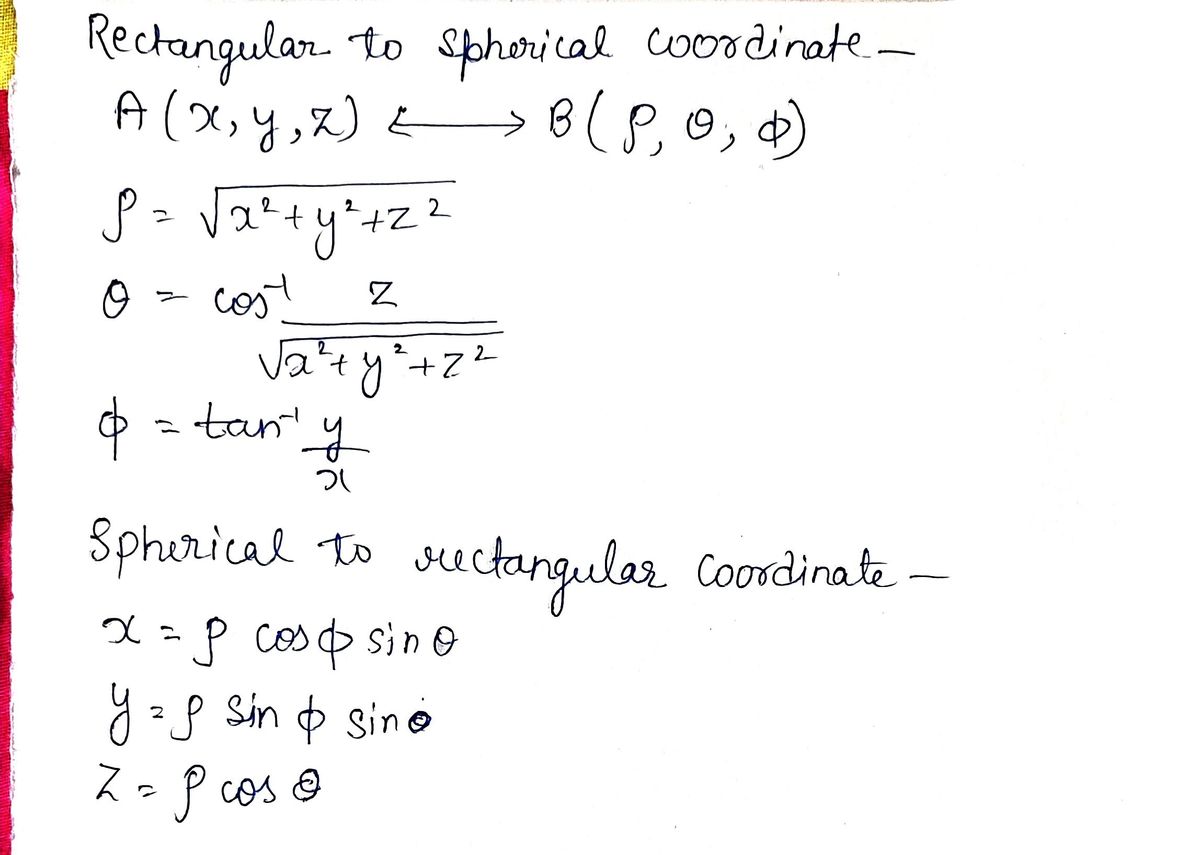 Rectangular to spherical coordinate –
A (x, y, z) ⟷ B ( ρ, θ, ϕ)
ρ = √x²+y²+z²
θ = cos⁻¹ z
√x²+y²+z²
ϕ = tan⁻¹ y
x
Spherical to rectangular coordinate –
x = ρ cos ϕ sin θ
y = ρ sin ϕ sin θ
z = ρ cos θ